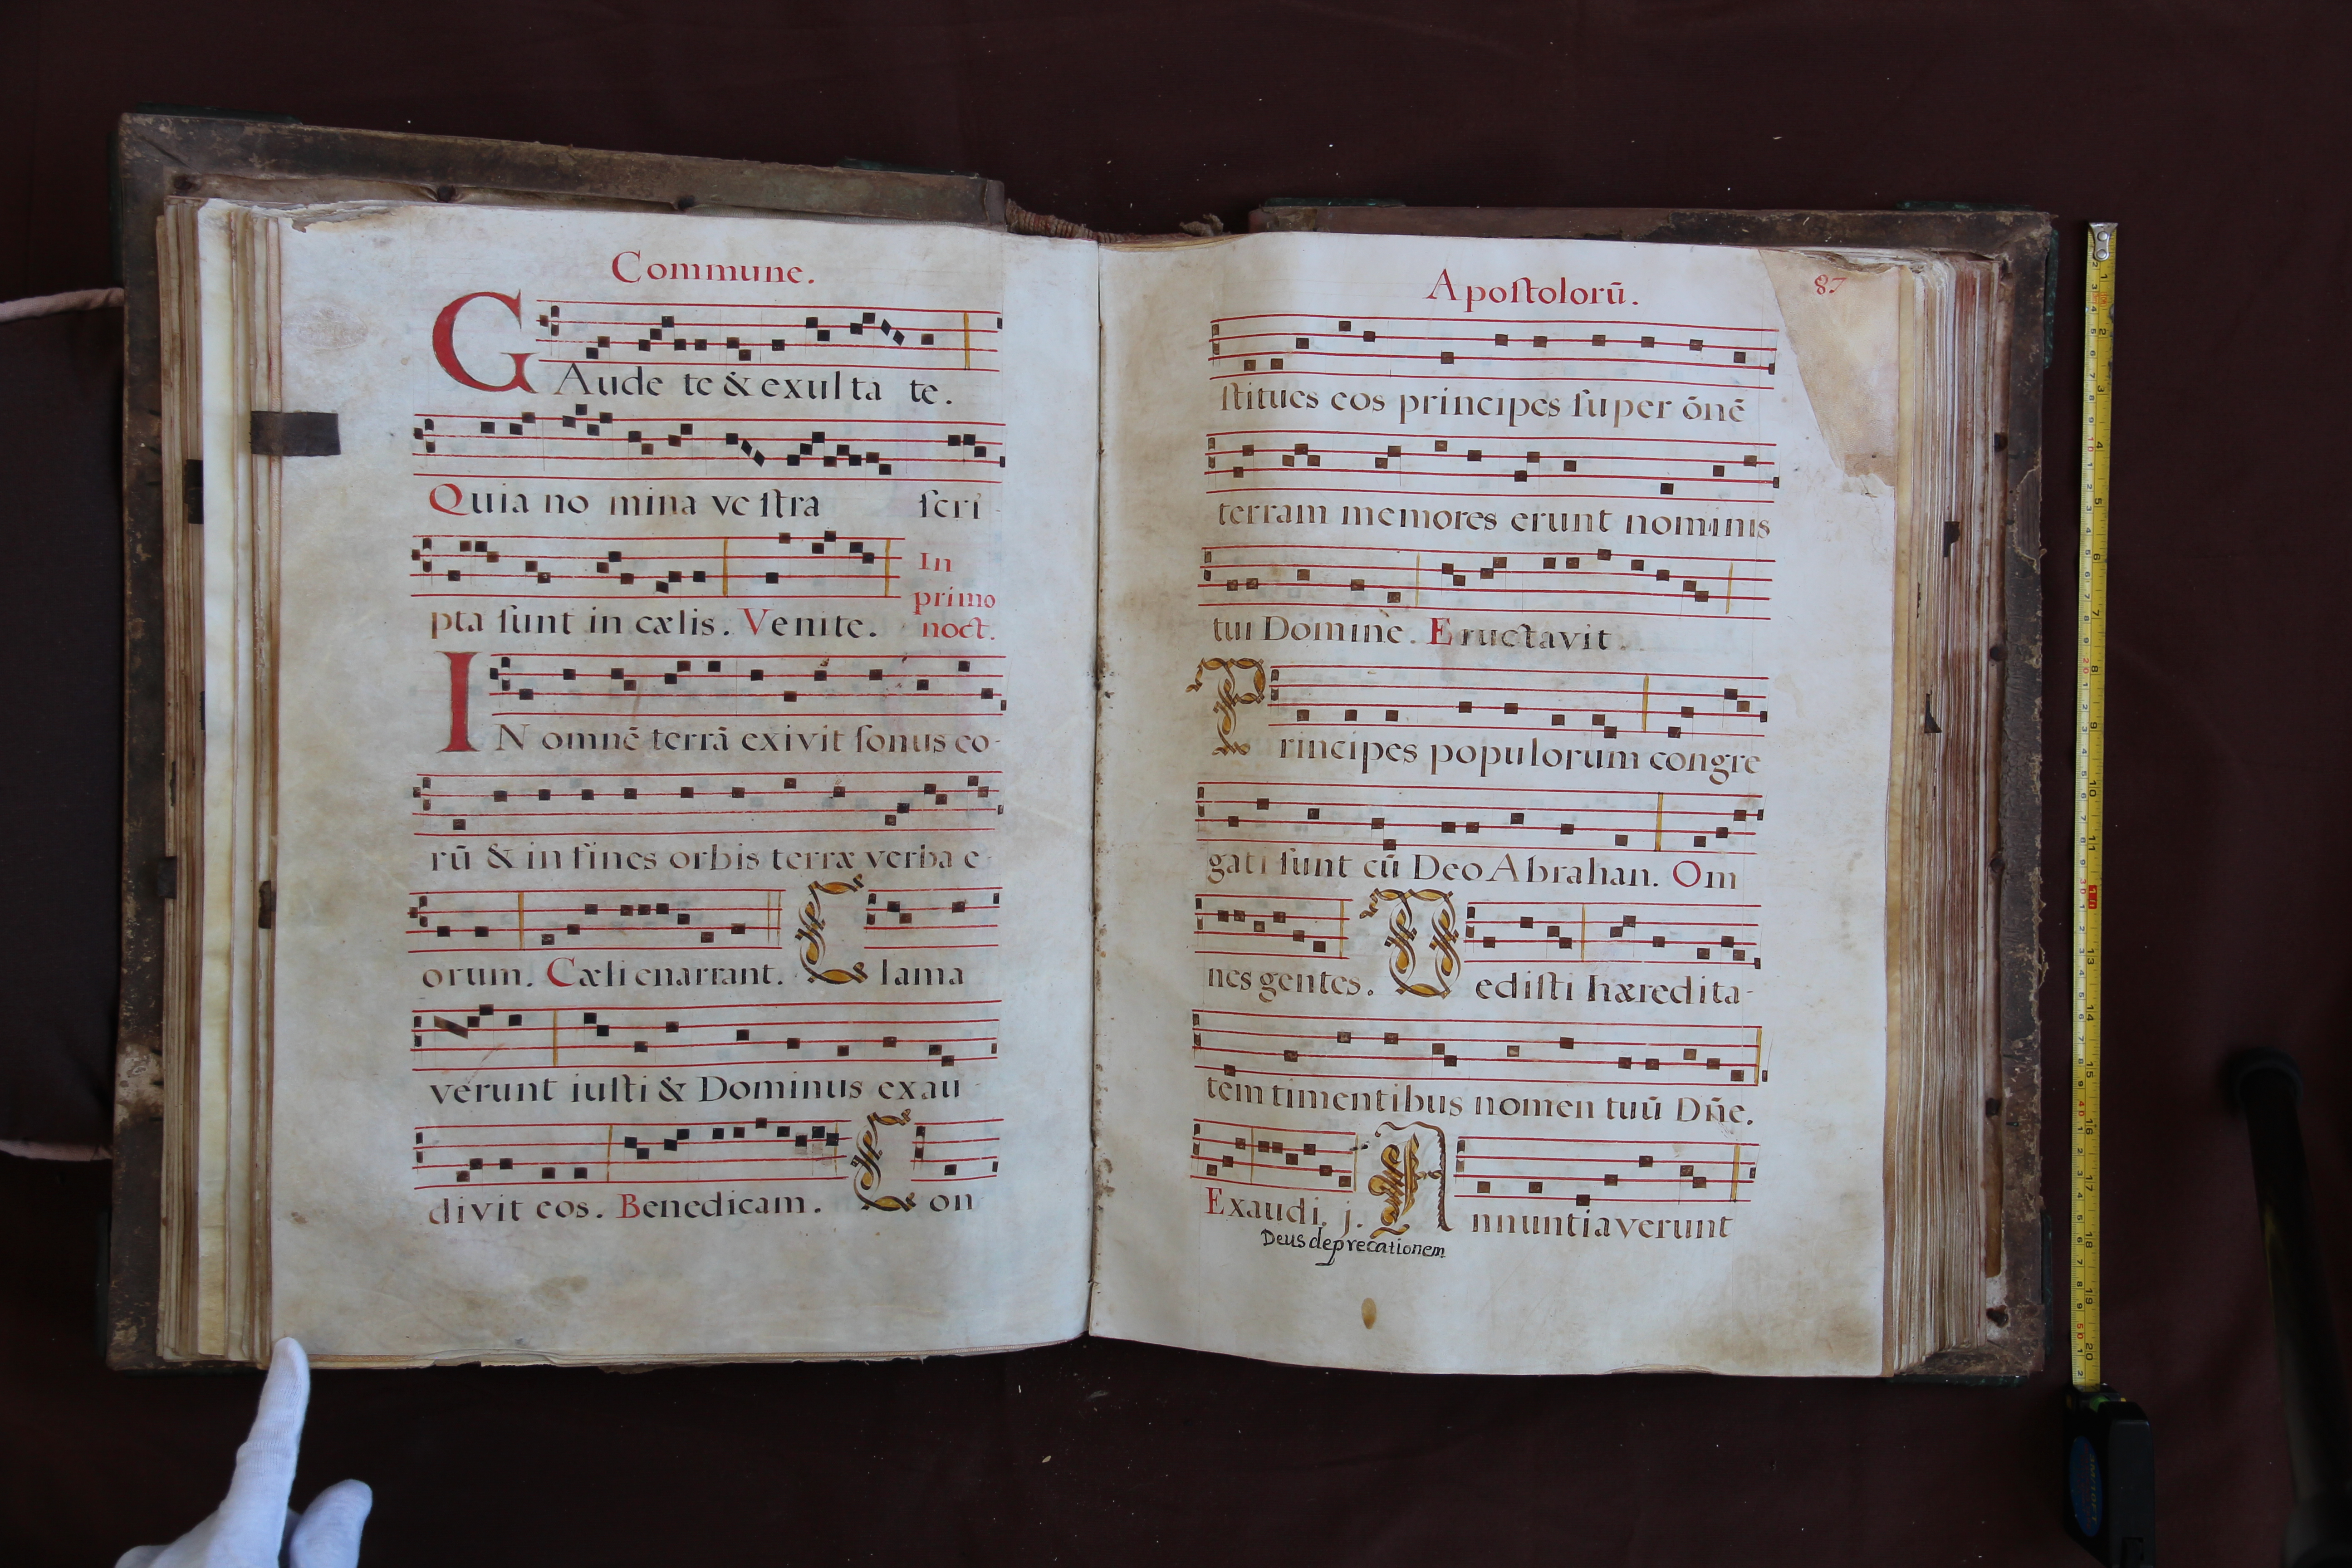 Commune.
GAude te & exulta te.
Quia no mina ve ſtra ſcri-
pta ſunt in cælis. Venite.
In
primo
noct.
IN omnē terrā exivit ſonus eo-
rū & in fines orbis terræ verba e-
orum. Cæli enarrant. Clama
verunt iuſti & Dominus exau-
divit eos. Benedicam. Con
Apoſtolorū.
87
ſtitues eos principes ſuper ōnē
terram memores erunt nominis
tui Domine. Eructavit.
Principes populorum congre
gati ſunt cū Deo Abrahan. Om
nes gentes. Dediſti hæredita-
tem timentibus nomen tuū Dn̄e.
Exaudi. j. Annuntiaverunt
Deus deprecationem